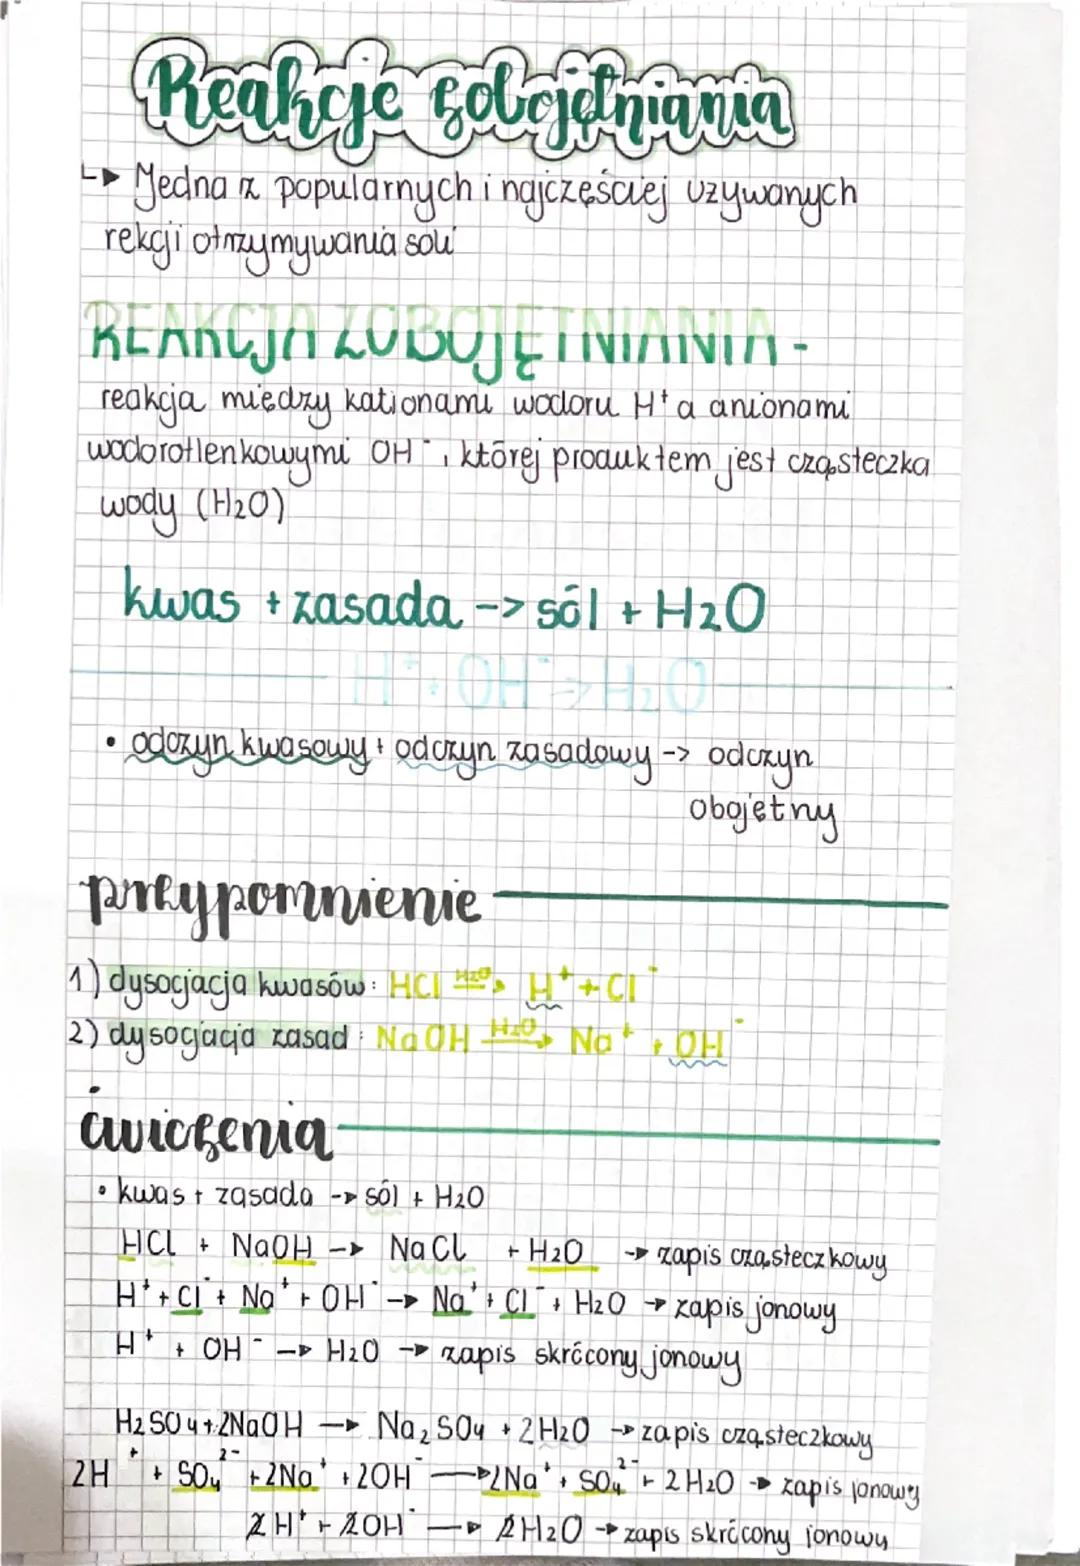 Reakcje zobojętniania
↳ Jedna z popularnych i najczęściej używanych
rekcji otrzymywania soli
REAKCJA ZOBOJĘTNIANIA -
reakcja między kationami wodoru H⁺ a anionami
wodorotlenkowymi OH⁻, której produktem jest cząsteczka
wody (H₂O)
kwas + zasada -> sól + H₂O
H⁺ + OH⁻ -> H₂O
• odczyn kwasowy + odczyn zasadowy -> odczyn
obojętny
przypomnienie
1) dysocjacja kwasów: HCl —H₂O→ H⁺ + Cl⁻
2) dysocjacja zasad: NaOH —H₂O→ Na⁺ + OH⁻
ćwiczenia
• kwas + zasada -> sól + H₂O
HCl + NaOH -> NaCl + H₂O -> zapis cząsteczkowy
H⁺ + Cl⁻ + Na⁺ + OH⁻ -> Na⁺ + Cl⁻ + H₂O -> zapis jonowy
H⁺ + OH⁻ -> H₂O -> zapis skrócony jonowy
H₂SO₄ + 2NaOH -> Na₂SO₄ + 2H₂O -> zapis cząsteczkowy
2H⁺ + SO₄²⁻ + 2Na⁺ + 2OH⁻ -> 2Na⁺ + SO₄²⁻ + 2H₂O -> zapis jonowy
2H⁺ + 2OH⁻ -> 2H₂O -> zapis skrócony jonowy